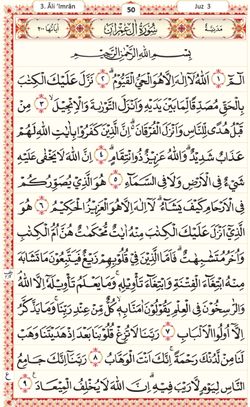 3. Âli 'Imrân
50
Juz 3
مَدَنِيَّةٌ
سُورَةُ آلِ عِمْرَانَ
اٰيَاتُهَا ٢٠٠
بِسْمِ اللّٰهِ الرَّحْمٰنِ الرَّحِيْمِ
الٓمّٓ ۚ ١ اَللّٰهُ لَآ اِلٰهَ اِلَّا هُوَ الْحَيُّ الْقَيُّوْمُ ۗ ٢ نَزَّلَ عَلَيْكَ الْكِتٰبَ
بِالْحَقِّ مُصَدِّقًا لِّمَا بَيْنَ يَدَيْهِ وَاَنْزَلَ التَّوْرٰىةَ وَالْاِنْجِيْلَ ۙ ٣ مِنْ
قَبْلُ هُدًى لِّلنَّاسِ وَاَنْزَلَ الْفُرْقَانَ ۗ اِنَّ الَّذِيْنَ كَفَرُوْا بِاٰيٰتِ اللّٰهِ لَهُمْ
عَذَابٌ شَدِيْدٌ ۗ وَاللّٰهُ عَزِيْزٌ ذُو انْتِقَامٍ ۗ ٤ اِنَّ اللّٰهَ لَا يَخْفٰى عَلَيْهِ
شَيْءٌ فِى الْاَرْضِ وَلَا فِى السَّمَاۤءِ ۗ ٥ هُوَ الَّذِيْ يُصَوِّرُكُمْ
فِى الْاَرْحَامِ كَيْفَ يَشَاۤءُ ۗ لَآ اِلٰهَ اِلَّا هُوَ الْعَزِيْزُ الْحَكِيْمُ ٦ هُوَ
الَّذِيْٓ اَنْزَلَ عَلَيْكَ الْكِتٰبَ مِنْهُ اٰيٰتٌ مُّحْكَمٰتٌ هُنَّ اُمُّ الْكِتٰبِ
وَاُخَرُ مُتَشٰبِهٰتٌ ۗ فَاَمَّا الَّذِيْنَ فِيْ قُلُوْبِهِمْ زَيْغٌ فَيَتَّبِعُوْنَ مَا تَشَابَهَ
مِنْهُ ابْتِغَاۤءَ الْفِتْنَةِ وَابْتِغَاۤءَ تَأْوِيْلِهٖ ۚ وَمَا يَعْلَمُ تَأْوِيْلَهٗٓ اِلَّا اللّٰهُ ۘ
وَالرّٰسِخُوْنَ فِى الْعِلْمِ يَقُوْلُوْنَ اٰمَنَّا بِهٖ ۙ كُلٌّ مِّنْ عِنْدِ رَبِّنَا ۚ وَمَا يَذَّكَّرُ
اِلَّآ اُولُوا الْاَلْبَابِ ٧ رَبَّنَا لَا تُزِغْ قُلُوْبَنَا بَعْدَ اِذْ هَدَيْتَنَا وَهَبْ
لَنَا مِنْ لَّدُنْكَ رَحْمَةً ۚ اِنَّكَ اَنْتَ الْوَهَّابُ ٨ رَبَّنَآ اِنَّكَ جَامِعُ
النَّاسِ لِيَوْمٍ لَّا رَيْبَ فِيْهِ ۗ اِنَّ اللّٰهَ لَا يُخْلِفُ الْمِيْعَادَ ٩